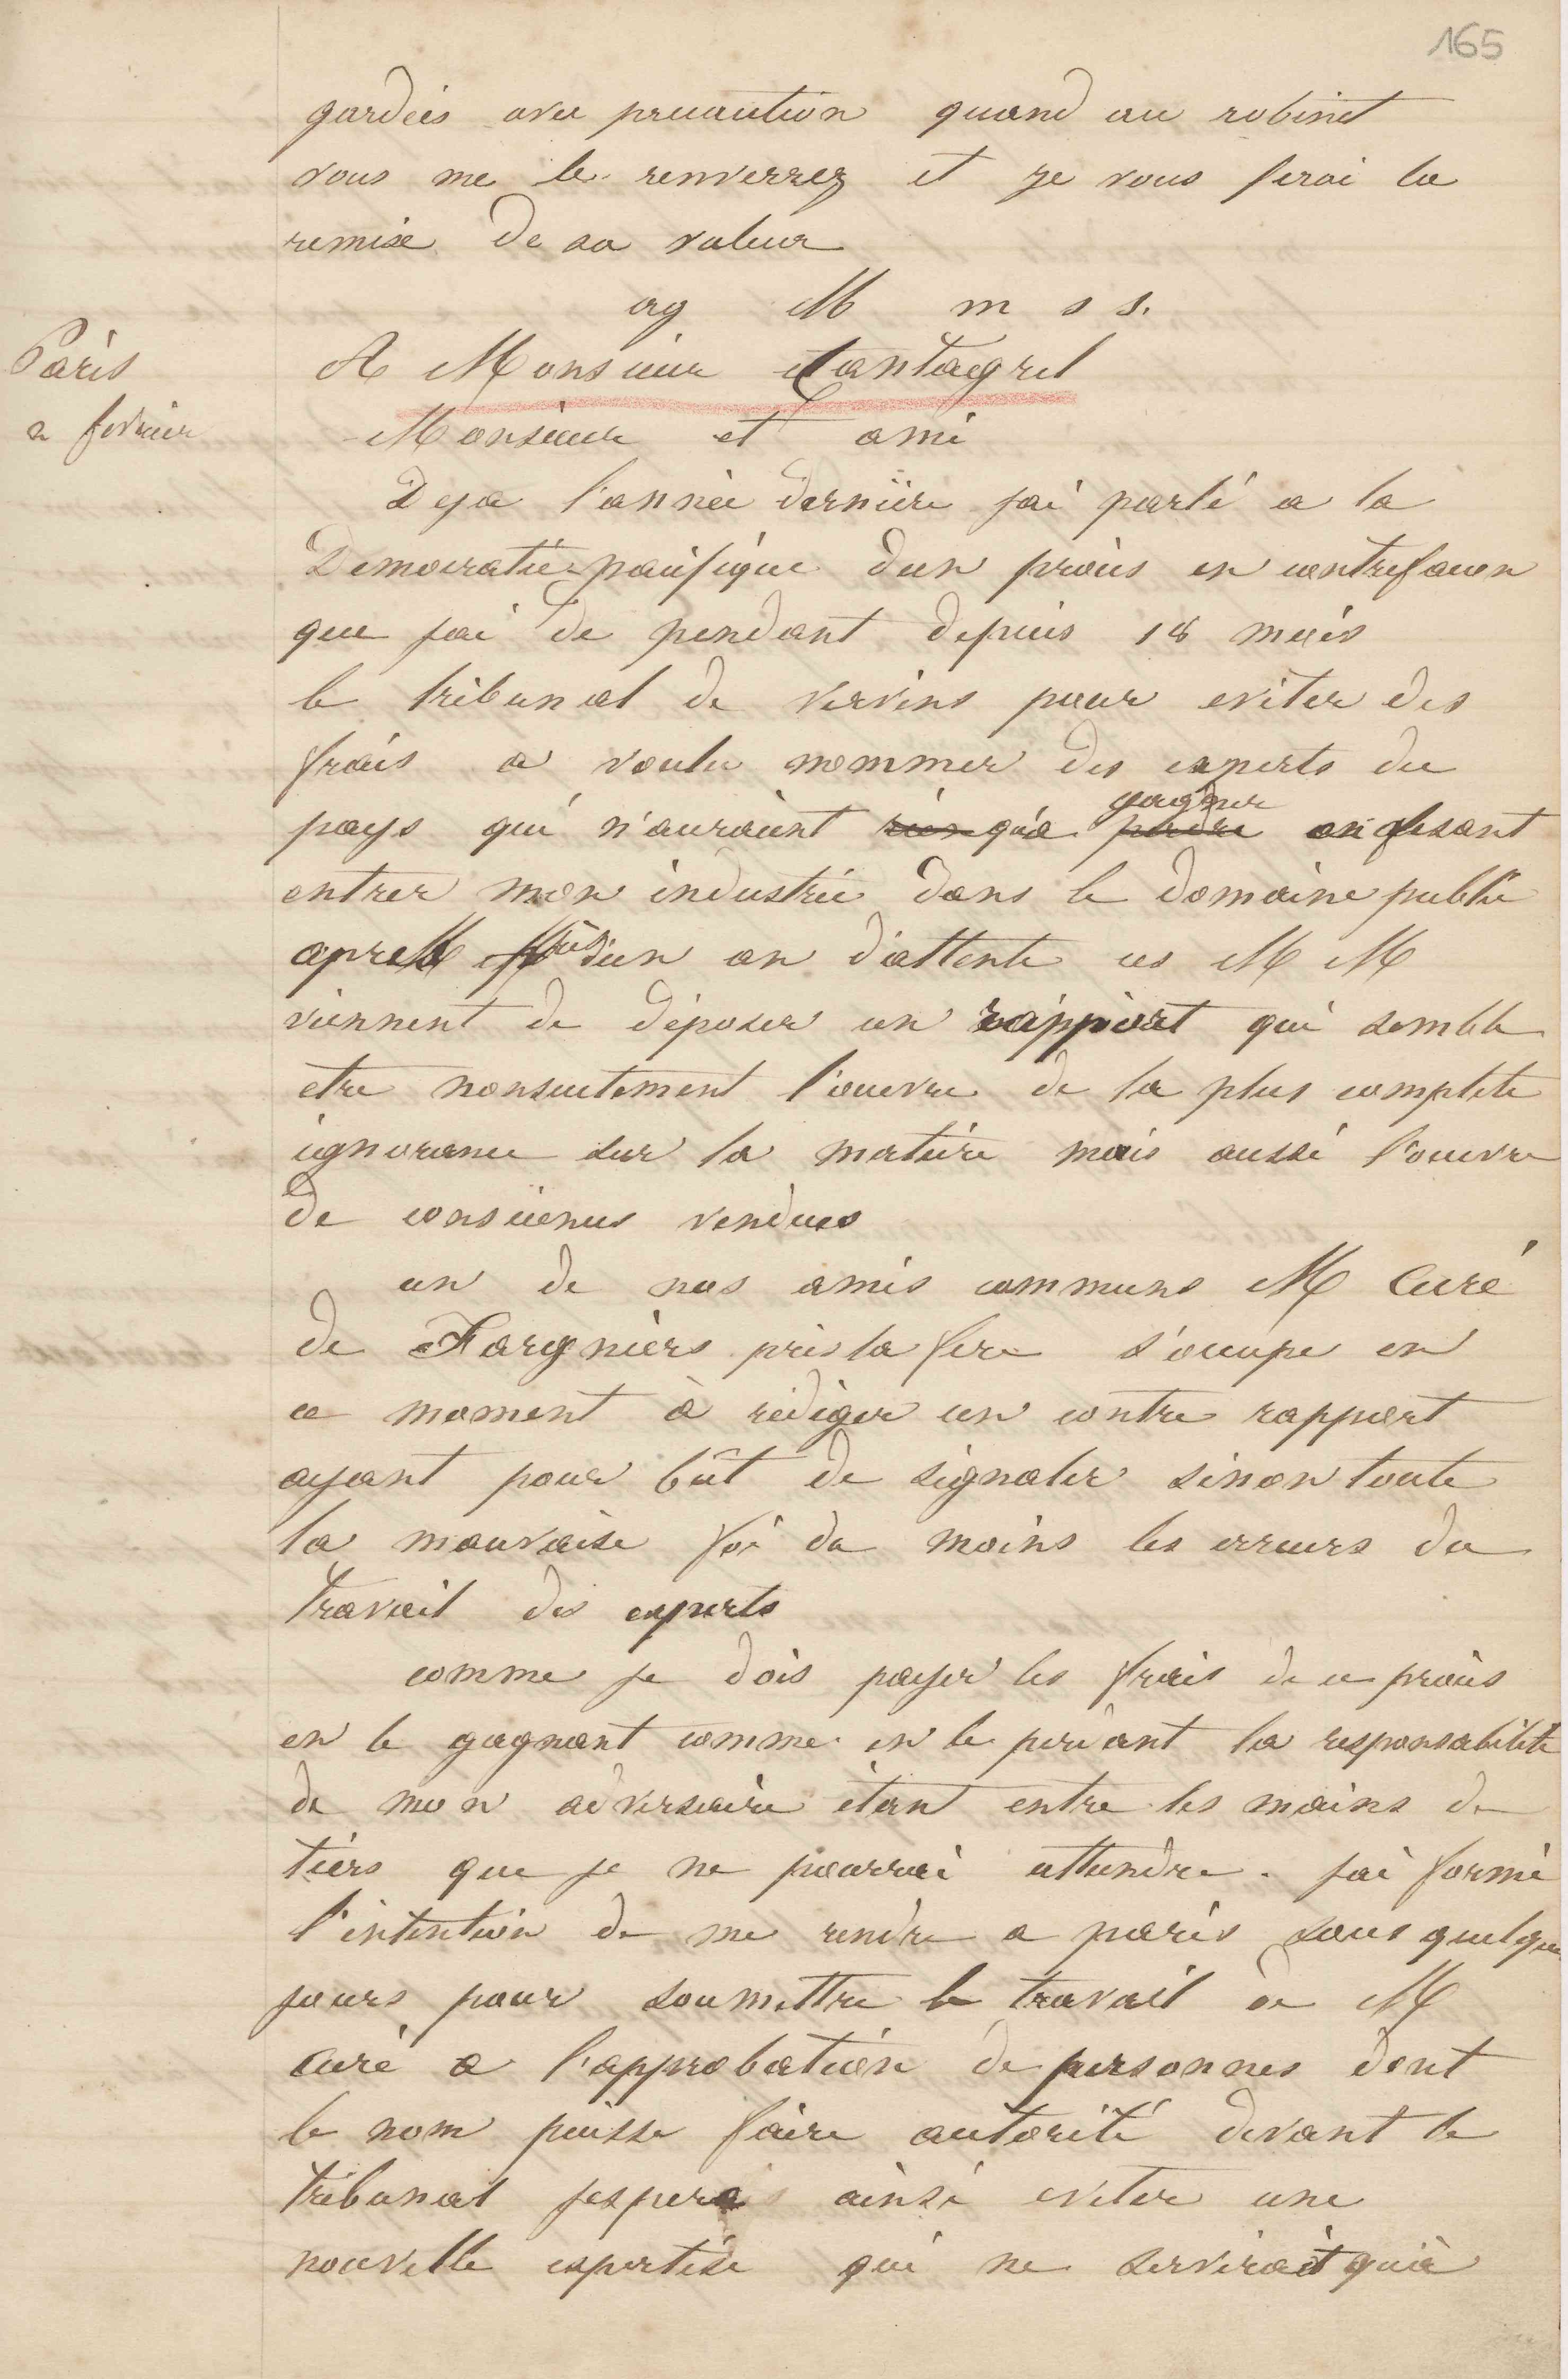 165
gardées avec precaution quand au robinet
vous me le renverrez et je vous ferai la
remise de sa valeur
ag M m s s.
Paris
2 fevrier
A Monsieur Cantagrel
Monsieur et ami
Deja l'année derniére jai parlé a la
Democratie pacifique d'un procés en contrefacon
que jai de pendant depuis 18 mois
le tribunal de Vervins pour eviter des
frais a voulu nommer des experts du
pays qui n'auraient rien qu'a perdre gagner en fesant
entrer mon industrie dans le domaine public
apres plus d'un an d'attente ces M M
viennent de déposer un rapport qui semble
etre nonseulement l'ouevre de la plus complete
ignorance sur la matière mais aussi l'ouevre
de consciences vendues
un de nos amis communs M Curé
de Fargniérs près la fere s'occupe en
ce moment à rédiger un contre rapport
ayant pour bût de signaler sinon toute
la mauvaise foi du moins les erreurs du
travail des experts
comme je dois payer les frais de ce procès
en le gagnant comme en le perdant la responsabilité
de mon adversaire étant entre les mains de
tiers que je ne pourrai attendre. jai formé
l'intention de me rendre a paris sous quelque
jours pour soumettre le travail de M
Curé a l'approbation de personnes dont
le nom puisse faire autorité devant le
tribunal jesperes ainsi eviter une
nouvelle expertise qui ne servirait qu'à